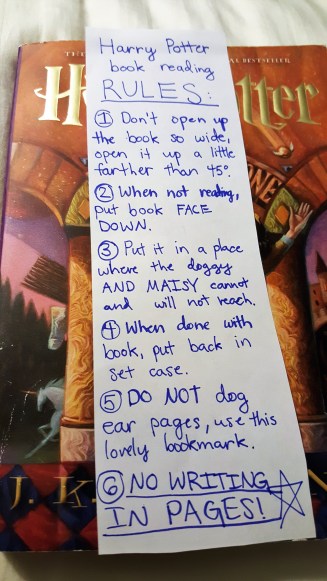 AL BESTSELLER
H tter
Harry Potter
book reading
RULES:
① Don't open up
the book so wide,
open it up a little
farther than 45°.
② When not reading,
put book FACE
DOWN.
③ Put it in a place
where the doggy
AND MAISY cannot
and will not reach.
④ When done with
book, put back in
set case.
⑤ DO NOT dog
ear pages, use this
lovely bookmark.
⑥ NO WRITING
IN PAGES!
J. K. N